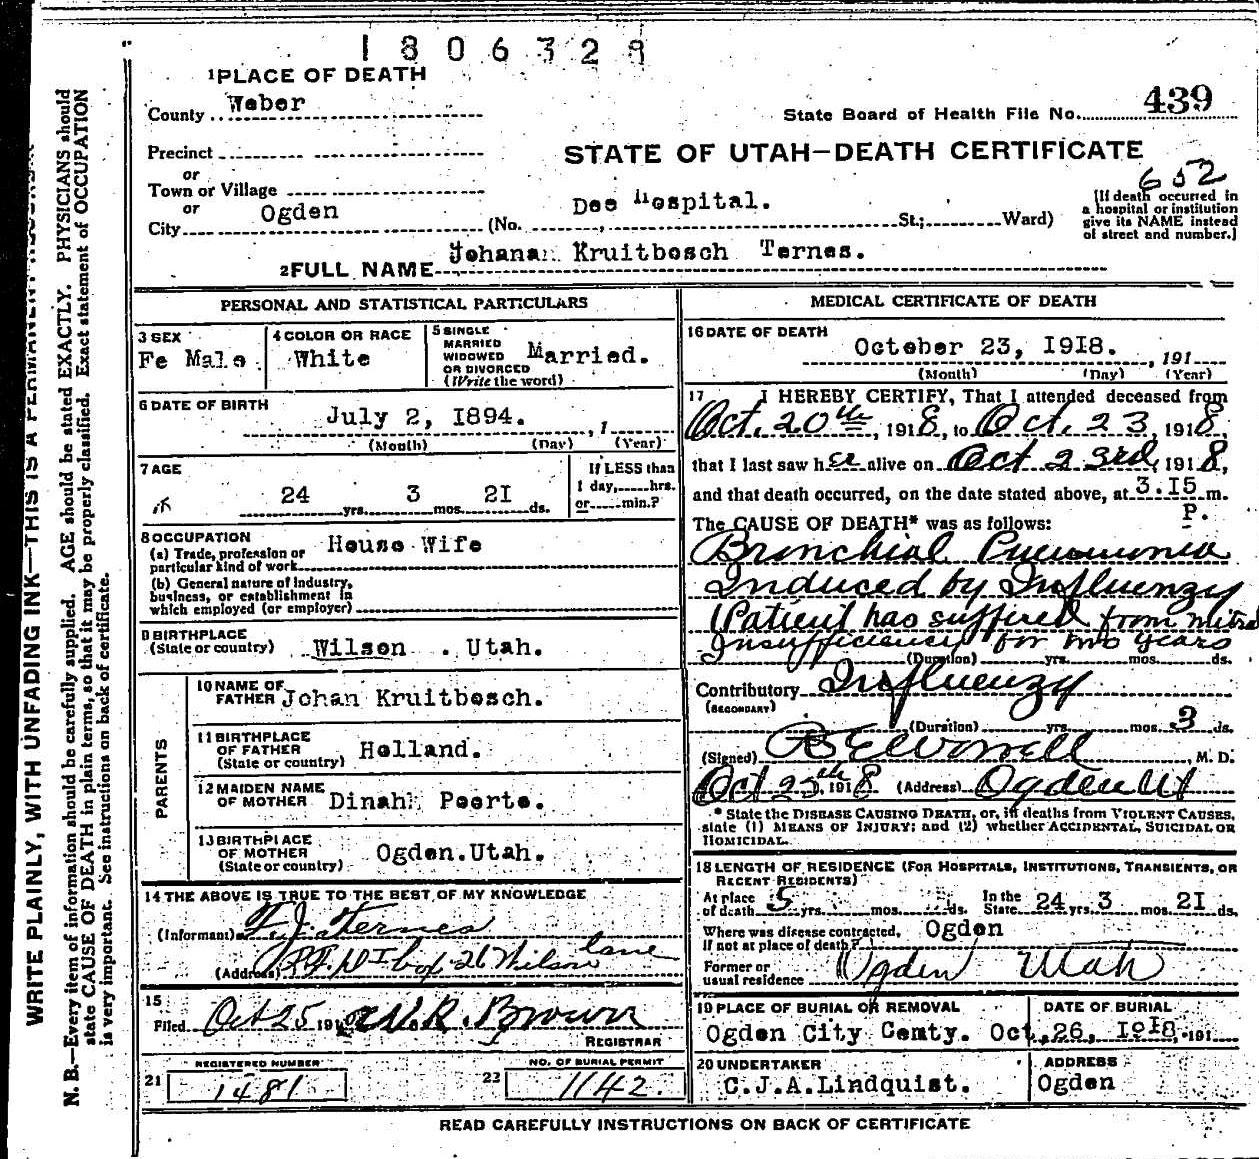 1806328
1 PLACE OF DEATH
County Weber
State Board of Health File No. 439
Precinct
STATE OF UTAH—DEATH CERTIFICATE
or
652
Town or Village
or
City Ogden (No. Dee Hospital. St.; Ward)
[If death occurred in
a hospital or institution
give its NAME instead
of street and number.]
2 FULL NAME Johanan Kruitbosch Ternes.
PERSONAL AND STATISTICAL PARTICULARS
3 SEX
Fe Male
4 COLOR OR RACE
White
5 SINGLE
MARRIED
WIDOWED
OR DIVORCED
(Write the word)
Married.
6 DATE OF BIRTH
July 2, 1894. , 1
(Month) (Day) (Year)
7 AGE
24 yrs. 3 mos. 21 ds.
If LESS than
1 day, hrs.
or min.?
8 OCCUPATION
(a) Trade, profession or
particular kind of work House Wife
(b) General nature of industry,
business, or establishment in
which employed (or employer)
9 BIRTHPLACE
(State or country) Wilson . Utah.
PARENTS
10 NAME OF
FATHER Johan Kruitbosch.
11 BIRTHPLACE
OF FATHER
(State or country) Holland.
12 MAIDEN NAME
OF MOTHER Dinah Poorte.
13 BIRTHPLACE
OF MOTHER
(State or country) Ogden.Utah.
14 THE ABOVE IS TRUE TO THE BEST OF MY KNOWLEDGE
(Informant) F. J. Ternes
(Address) R.F.D 1 box 26 Wilson lane
15
Filed Oct 25 191 W.R. Brown
REGISTRAR
REGISTERED NUMBER
21 1481
NO. OF BURIAL PERMIT
22 1142.
MEDICAL CERTIFICATE OF DEATH
16 DATE OF DEATH
October 23, 1918. , 191
(Month) (Day) (Year)
17 I HEREBY CERTIFY, That I attended deceased from
Oct. 20th, 1918, to Oct. 23, 1918,
that I last saw her alive on Oct 23rd, 1918,
and that death occurred, on the date stated above, at 3.15 m.
P.
The CAUSE OF DEATH* was as follows:
Bronchial Pneumonia
Induced by Influenzy
(Patient has suffered from mitral
Insufficiency for two years
(Duration) yrs. mos. ds.
Contributory Influenzy
(SECONDARY)
(Duration) yrs. mos. 3 ds.
(Signed) , M. D.
Oct 25th, 1918. (Address) Ogden Ut
* State the DISEASE CAUSING DEATH, or, in deaths from VIOLENT CAUSES,
state (1) MEANS OF INJURY; and (2) whether ACCIDENTAL, SUICIDAL OR
HOMICIDAL.
18 LENGTH OF RESIDENCE (FOR HOSPITALS, INSTITUTIONS, TRANSIENTS, OR
RECENT RESIDENTS)
At place
of death 5 yrs. mos. ds. In the
State 24 yrs. 3 mos. 21 ds.
Where was disease contracted,
If not at place of death? Ogden
Former or
usual residence Ogden Utah
19 PLACE OF BURIAL OR REMOVAL
Ogden City Cemty.
DATE OF BURIAL
Oct. 26, 1918, 191
20 UNDERTAKER
C.J.A.Lindquist.
ADDRESS
Ogden
READ CAREFULLY INSTRUCTIONS ON BACK OF CERTIFICATE
WRITE PLAINLY, WITH UNFADING INK—THIS IS A PERMANENT RECORD
N. B.—Every item of information should be carefully supplied. AGE should be stated EXACTLY. PHYSICIANS should
state CAUSE OF DEATH in plain terms, so that it may be properly classified. Exact statement of OCCUPATION
is very important. See instructions on back of certificate.